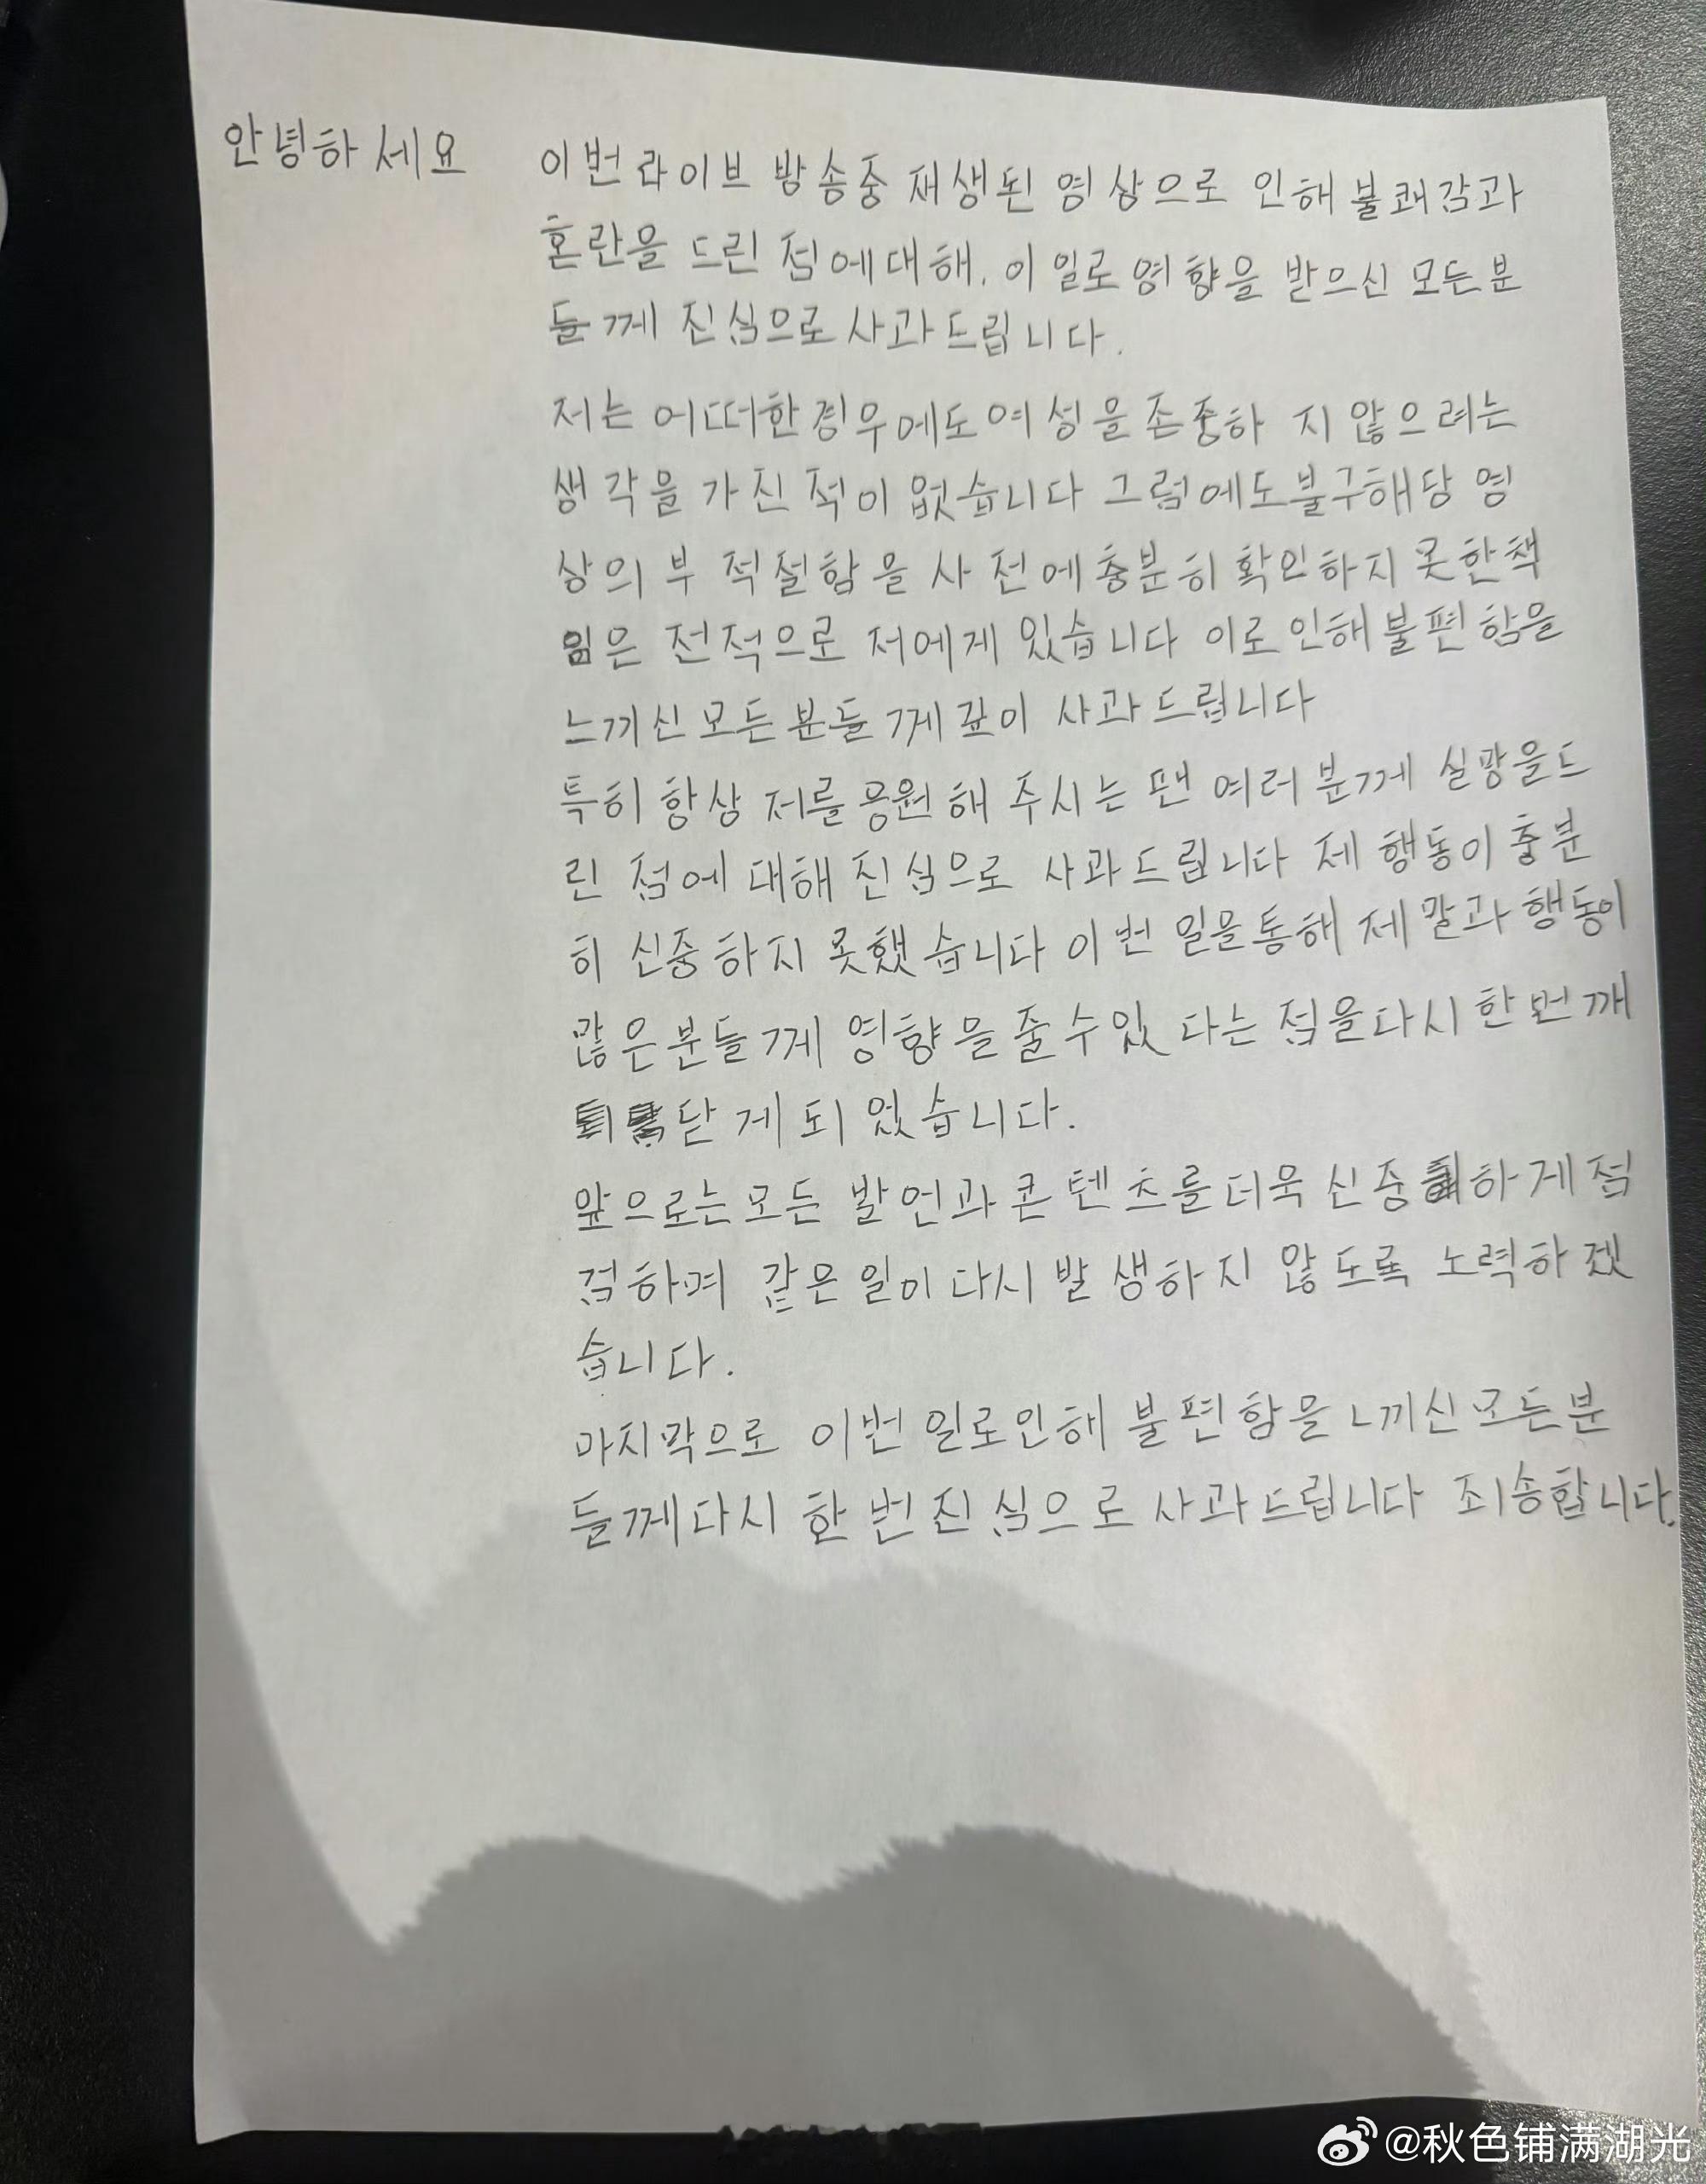 안녕하세요 이번 라이브 방송중 재생된 영상으로 인해 불쾌감과
혼란을 드린 점에대해. 이 일로 영향을 받으신 모든분
들께 진심으로 사과드립니다.
저는 어떠한경우에도여성을존중하 지않으려는
생각을 가진 적이 없습니다 그럼에도불구해당 영
상의 부적절함을 사전에충분히확인하지못한책
임은 전적으로 저에게 있습니다 이로인해불편함을
느끼신모든분들께깊이 사과드립니다
특히항상 저를응원해 주시는 팬 여러분께 실망을드
린 점에대해진심으로 사과드립니다 제 행동이 충분
히 신중하지 못했습니다 이번 일을통해 제말과행동이
많은분들께 영향을줄수있 다는 점을다시한번깨
닫게되었습니다.
앞으로는모든 발언과콘텐츠를더욱 신중하게점
검하며 같은일이다시발생하지 않도록 노력하겠
습니다.
마지막으로 이번 일로인해 불편함을 느끼신모든분
들께다시 한번진심으로 사과드립니다 죄송합니다.
@秋色铺满湖光